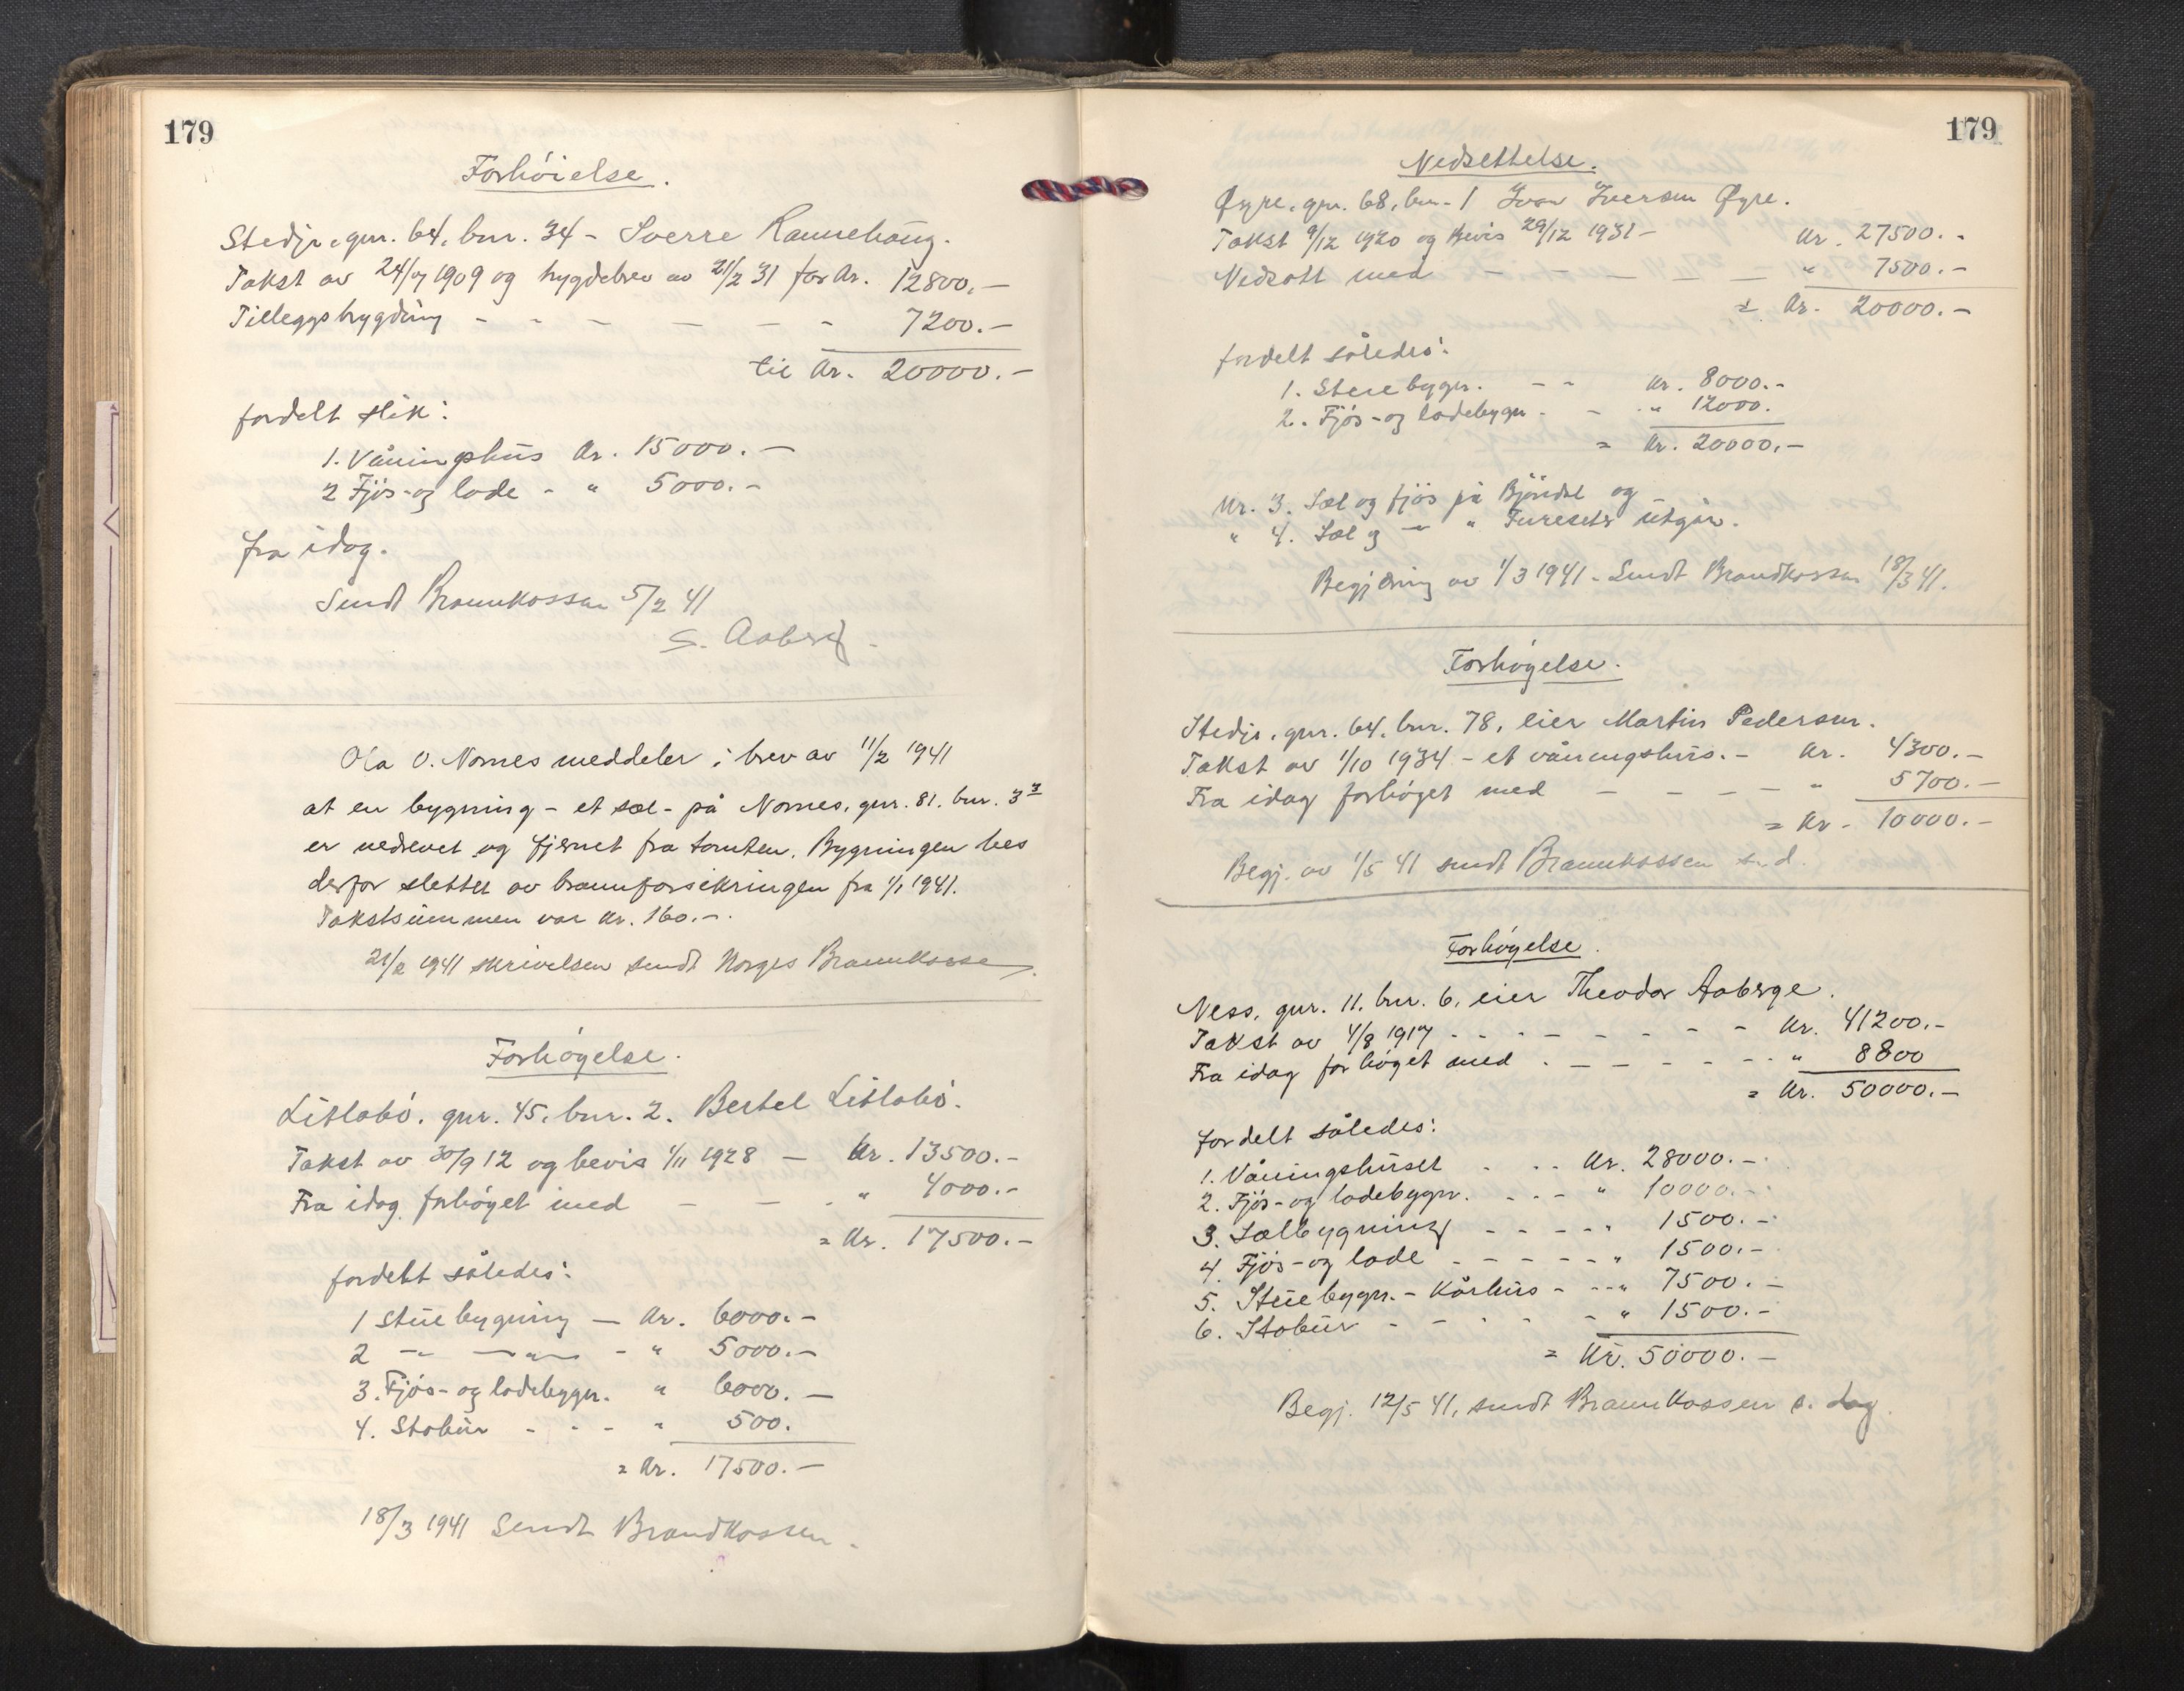 179
Forhöielse.
Stedje, gnr. 64, bnr. 34 - Sverre Rannehaug.
Takst av 24/7 1909 og bygdebrev av 21/2 31 for kr. 12800.-
Tilleggsbygding - - - - - - 7200.-
til kr. 20000.-
fordelt slik:
1. Våningshus kr. 15000.-
2 Fjös- og lade - " 5000.-
fra idag.
Sendt Brannkassen 5/2 41
S. Aaberg.
Ola O. Nornes meddeler i brev av 11/2 1941
at en bygning - et sæl - på Nornes, gnr. 81. bnr. 3
er nedrevet og fjernet fra tomten. Bygningen bes
derfor slettet av brannforsikringen fra 1/1 1941.
Takstsummen var kr. 160.-.
21/2 1941 skrivelsen sendt Norges Brannkasse.
Forhögelse.
Litlabö. gnr. 45, bnr. 2. Bertel Litlabö.
Takst av 30/9 12 og bevis 1/11 1928 - kr. 13500.-
Fra idag forhöget med - - - " 4000.-
= kr. 17500.-
fordelt således:
1 Stuebygning - kr. 6000.-
2 -"- -"- - " 5000.-
3. Fjös- og ladebygn. " 6000.-
4. Stabur - - - " 500.
= kr. 17500.-
18/3 1941 Sendt Brandkassen.
179
Nedsettelse.
Øyre, gnr. 68, bnr. 1 Ivar Iversen Øyre.
Takst 9/12 1920 og Bevis 29/12 1931 - kr. 27500.-
Nedsatt med - - - - - " 7500.-
= kr. 20000.-
fordelt således:
1. Stuebygn. - - kr. 8000.-
2. Fjös- og ladebygn. - " 12000.
= kr. 20000.-
Nr. 3. Sæl og fjös på Bjöndal og
" 4. Sæl og -"- " Furesete utgår.
Begjæring av 1/3 1941 - Sendt Brandkassen 18/3 41.
Forhögelse.
Stedje, gnr. 64, bnr. 78, eier Martin Pedersen.
Takst av 1/10 1934 - et våningshus. - kr. 4300.-
Fra idag forhöget med - - - - " 5700.-
= kr. 10000.-
Begj. av 1/5 41 sendt Brannkassen s.d.
Forhögelse.
Ness, gnr. 11. bnr. 6, eier Theodor Aaberge.
Takst av 4/8 1917 - - - - - - - kr. 41200.-
Fra idag forhöget med - - - - - - " 8800
= kr. 50000.-
fordelt således:
1. Våningshuset - - - kr. 28000.-
2. Fjös- og ladebygn. - - - " 10000.-
3. Sælbygning - - - - - " 1500.-
4. Fjös- og lade - - - - - " 1500.-
5. Stuebygn. - Kårhus - - - " 7500.-
6. Stabur - - - - - " 1500.-
= kr. 50000.-
Begj. 12/5 41, sendt Brannkassen s. dag